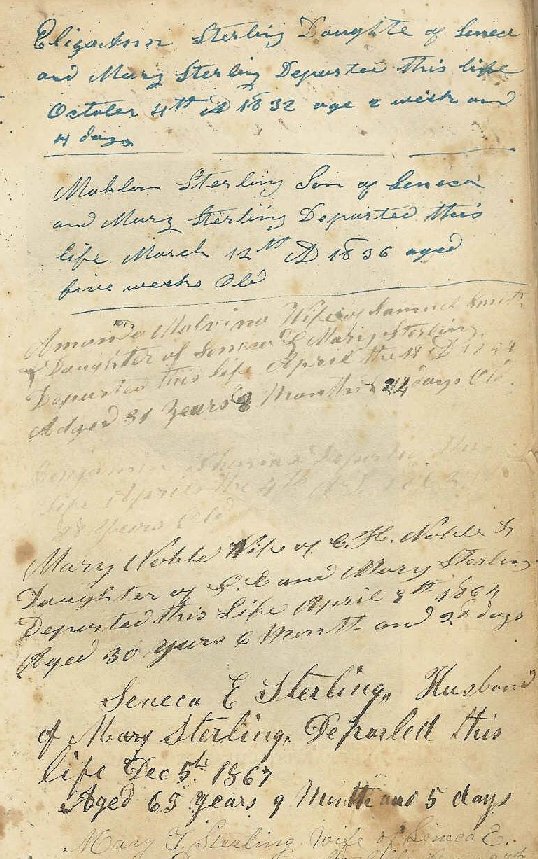 Elizaann Sterling Daughte of Seneca
and Mary Sterling Departed this life
October 4th AD 1832 age 2 week and
4 days
Mahlon Sterling Son of Seneca
and Mary Sterling Departed this
life March 12th AD 1836 aged
five weeks Old
Amanda Malvina Wife of Samuel
& Daughter of Seneca & Mary Sterling
Departed this life April the
Adged 31 Years 8 Months 24 days Old
Departed this
life April the 4th
Years Old
Mary Noble Wife of C. H. Noble &
Daughter of S. E and Mary Sterling
Departed this Life April 8th
Aged 30 Years 6 Month and days
Seneca E Sterling, Husband
of Mary Sterling. Departed this
life Dec 5th 1867
Aged 65 years 9 Month and 5 days
Mary Sterling wife of Seneca E.